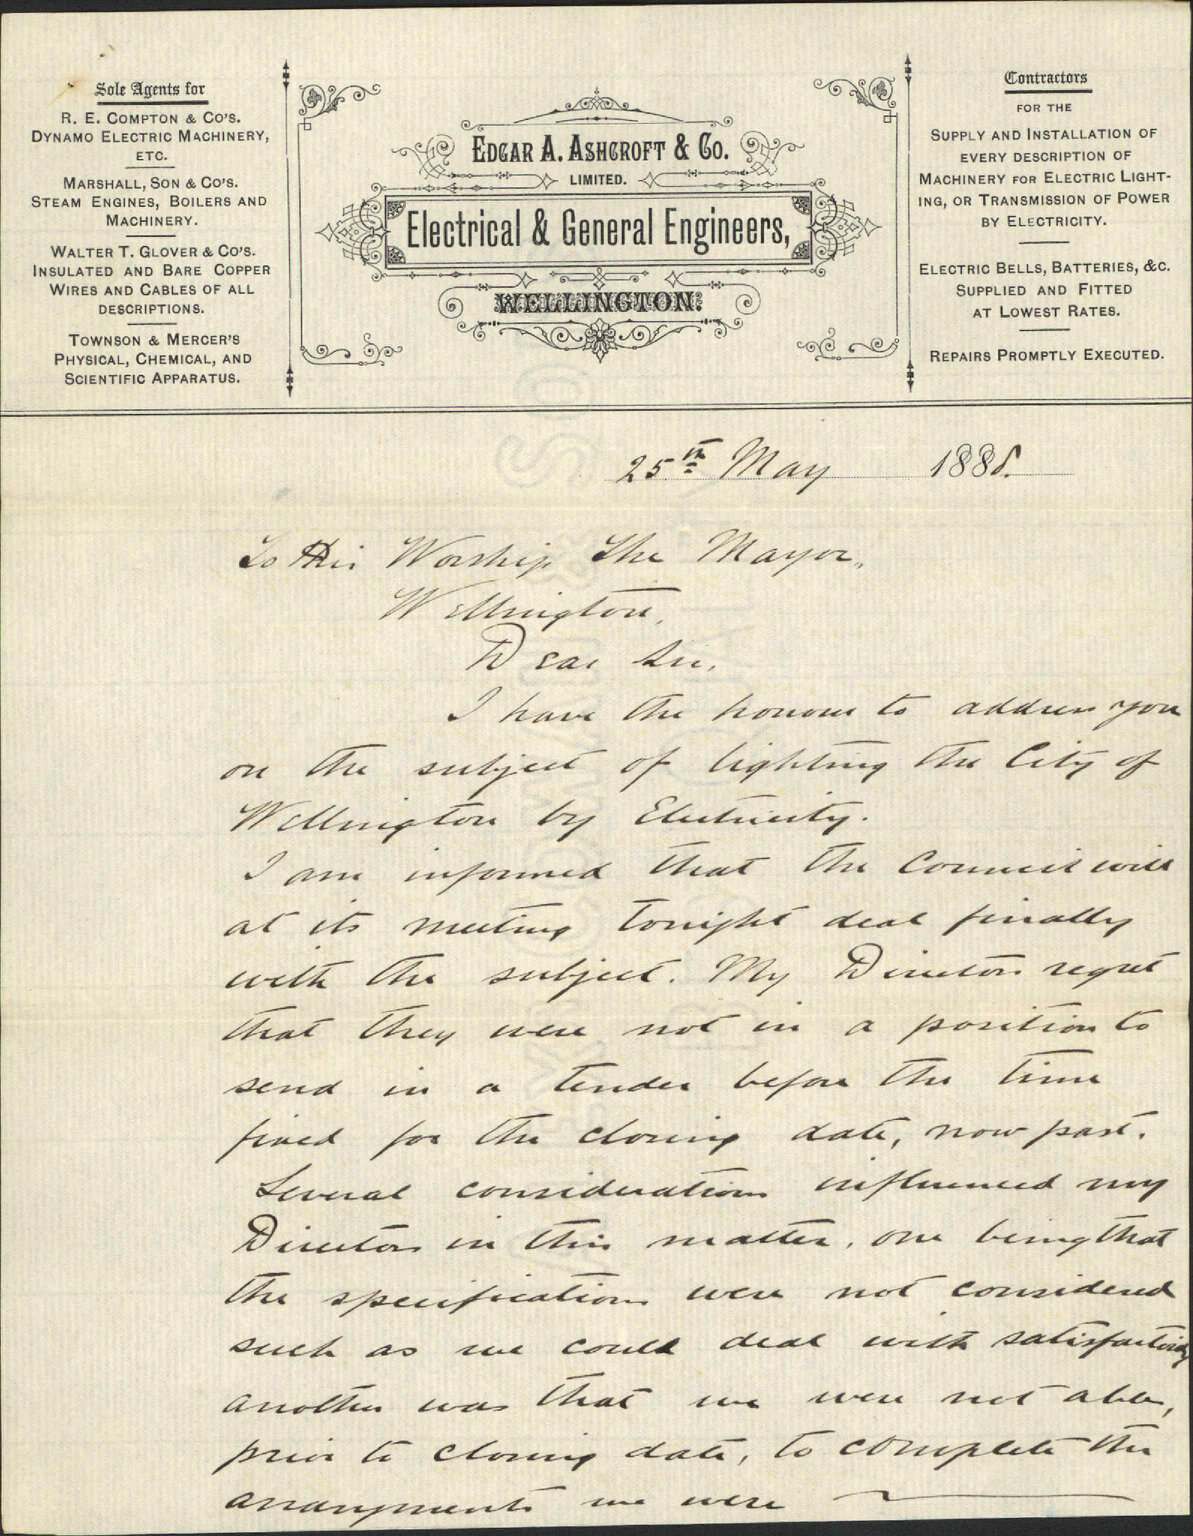 Sole Agents for
R. E. COMPTON & CO'S.
DYNAMO ELECTRIC MACHINERY,
ETC.
MARSHALL, SON & CO'S.
STEAM ENGINES, BOILERS AND
MACHINERY.
WALTER T. GLOVER & CO'S.
INSULATED AND BARE COPPER
WIRES AND CABLES OF ALL
DESCRIPTIONS.
TOWNSON & MERCER'S
PHYSICAL, CHEMICAL, AND
SCIENTIFIC APPARATUS.
EDGAR A. ASHCROFT & CO.
LIMITED.
Electrical & General Engineers,
WELLINGTON.
Contractors
FOR THE
SUPPLY AND INSTALLATION OF
EVERY DESCRIPTION OF
MACHINERY FOR ELECTRIC LIGHT-
ING, OR TRANSMISSION OF POWER
BY ELECTRICITY.
ELECTRIC BELLS, BATTERIES, &C.
SUPPLIED AND FITTED
AT LOWEST RATES.
REPAIRS PROMPTLY EXECUTED.
25th May 1888.
To His Worship The Mayor,
Wellington,
Dear Sir,
I have the honour to address you
on the subject of lighting the City of
Wellington by Electricity.
I am informed that the Council will
at its meeting tonight deal finally
with the subject. My Directors regret
that they were not in a position to
send in a tender before the time
fixed for the closing date, now past.
Several considerations influenced my
Directors in this matter, one being that
the specifications were not considered
such as we could deal with satisfactorily
another was that we were not able,
prior to closing date, to complete the
arrangements we were